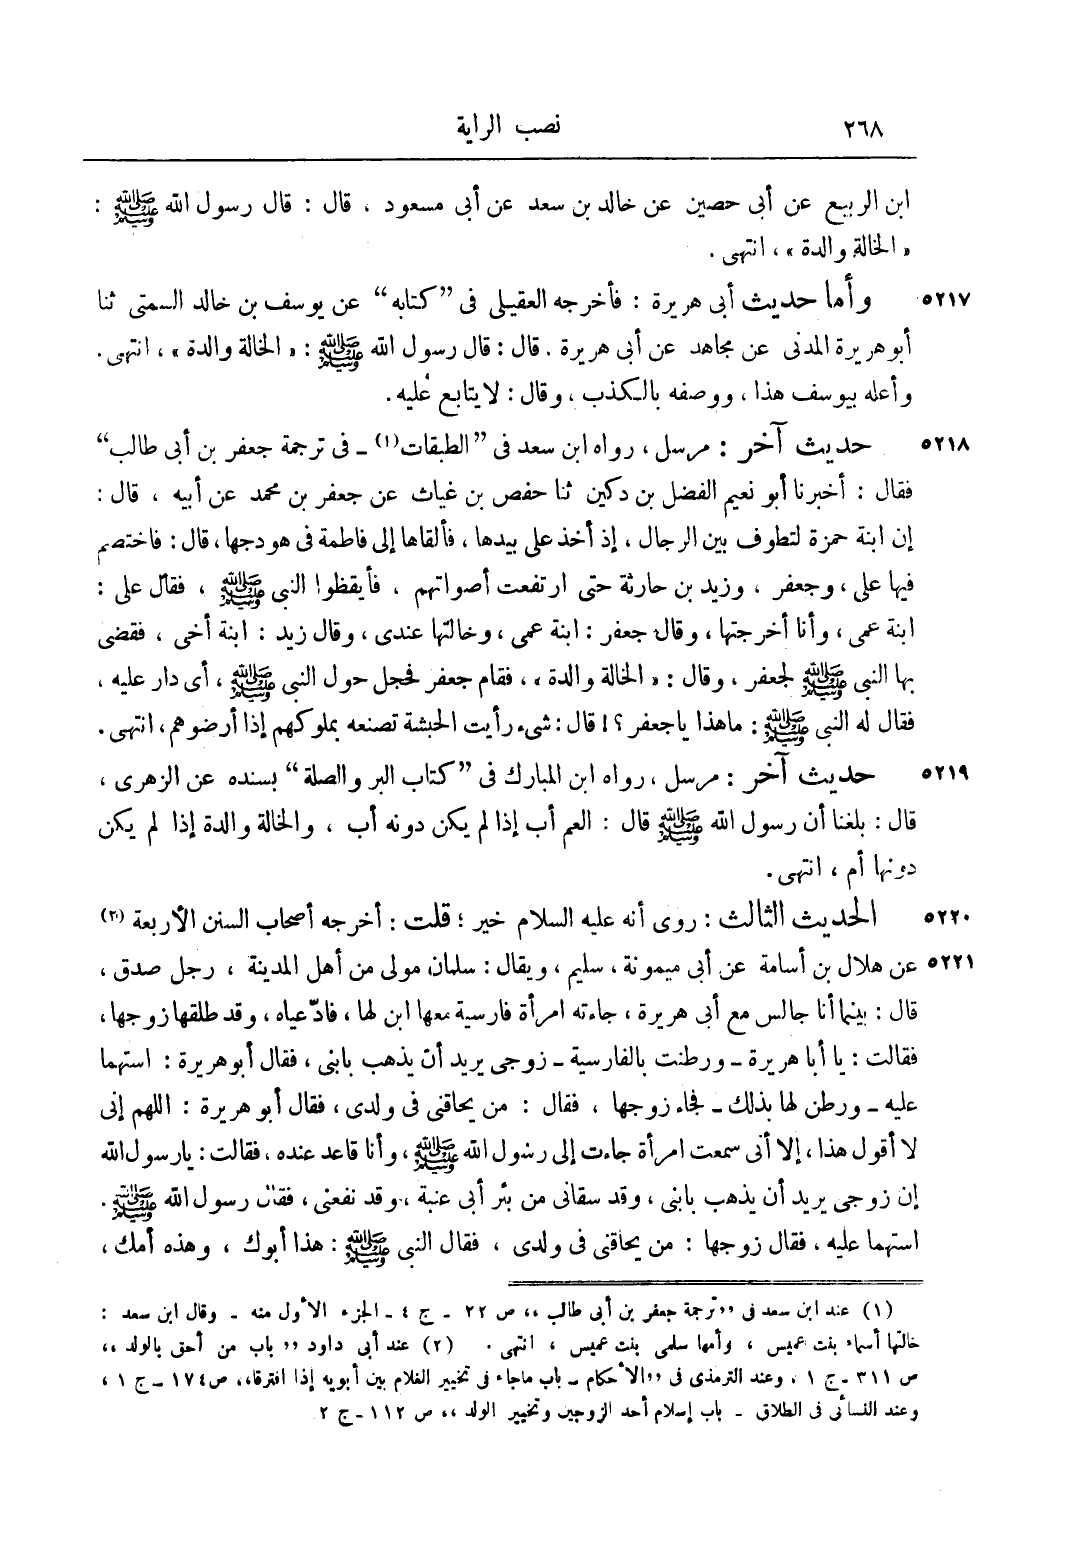 ٢٦٨ نصب الراية
ابن الربيع عن أبى حصين عن خالد بن سعد عن أبى مسعود ، قال : قال رسول الله ﷺ :
« الخالة والدة » ، انتهى .
٥٢١٧ وأما حديث أبى هريرة : فأخرجه العقيلى فى ”كتابه“ عن يوسف بن خالد السمتى ثنا
أبو هريرة المدنى عن مجاهد عن أبى هريرة . قال : قال رسول الله ﷺ : « الخالة والدة » ، انتهى .
وأعله بيوسف هذا ، ووصفه بالكذب ، وقال : لا يتابع عليه .
٥٢١٨ حديث آخر : مرسل ، رواه ابن سعد فى ”الطبقات (١) ــ فى ترجمة جعفر بن أبى طالب“
فقال : أخبرنا أبو نعيم الفضل بن دكين ثنا حفص بن غياث عن جعفر بن محمد عن أبيه ، قال :
إن ابنة حمزة لتطوف بين الرجال ، إذ أخذ على بيدها ، فألقاها إلى فاطمة فى هودجها ، قال : فاختصم
فيها على ، وجعفر ، وزيد بن حارثة حتى ارتفعت أصواتهم ، فأيقظوا النبى ﷺ ، فقال على :
ابنة عمى ، وأنا أخرجتها ، وقال جعفر : ابنة عمى ، وخالتها عندى ، وقال زيد : ابنة أخى ، فقضى
بها النبى ﷺ لجعفر ، وقال : « الخالة والدة » ، فقام جعفر فحجل حول النبى ﷺ ، أى دار عليه ،
فقال له النبى ﷺ : ماهذا ياجعفر ؟ ! قال : شىء رأيت الحبشة تصنعه بملوكهم إذا أرضوهم ، انتهى .
٥٢١٩ حديث آخر : مرسل ، رواه ابن المبارك فى ”كتاب البر والصلة“ بسنده عن الزهرى ،
قال : بلغنا أن رسول الله ﷺ قال : العم أب إذا لم يكن دونه أب ، والخالة والدة إذا لم يكن
دونها أم ، انتهى .
٥٢٢٠ الحديث الثالث : روى أنه عليه السلام خير ؛ قلت : أخرجه أصحاب السنن الأربعة (٢)
٥٢٢١ عن هلال بن أسامة عن أبى ميمونة ، سليم ، ويقال : سلمان مولى من أهل المدينة ، رجل صدق ،
قال : بينما أنا جالس مع أبى هريرة ، جاءته امرأة فارسية معها ابن لها ، فادّعياه ، وقد طلقها زوجها ،
فقالت : يا أبا هريرة ــ ورطنت بالفارسية ــ زوجى يريد أن يذهب بابنى ، فقال أبو هريرة : استهما
عليه ــ ورطن لها بذلك ــ فجاء زوجها ، فقال : من يحاقنى فى ولدى ، فقال أبو هريرة : اللهم إنى
لا أقول هذا ، إلا أنى سمعت امرأة جاءت إلى رسول الله ﷺ ، وأنا قاعد عنده ، فقالت : يارسول الله
إن زوجى يريد أن يذهب بابنى ، وقد سقانى من بئر أبى عنبة ، وقد نفعنى ، فقال رسول الله ﷺ .
استهما عليه ، فقال زوجها : من يحاقنى فى ولدى ، فقال النبى ﷺ : هذا أبوك ، وهذه أمك ،
(١) عند ابن سعد فى ,,ترجمة جعفر بن أبى طالب ,, ص ٢٢ ــ ج ٤ ــ الجزء الأول منه ــ وقال ابن سعد :
خالتها أسماء بنت عميس ، وأمها سلمى بنت عميس ، انتهى . (٢) عند أبى داود ,, باب من أحق بالولد ,,
ص ٣١١ ــ ج ١ ، وعند الترمذى فى ,,الأحكام ــ باب ماجاء فى تخيير الغلام بين أبويه إذا افترقا,, ص ١٧٤ ــ ج ١ ،
وعند النسائى فى الطلاق ــ باب إسلام أحد الزوجين وتخيير الولد ,, ص ١١٢ ــ ج ٢